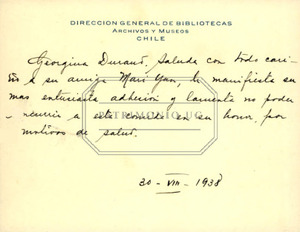 DIRECCION GENERAL DE BIBLOTECAS
ARCHIVOS Y MUSEOS
CHILE
Georgina Durand, saluda con todo cari-
ño a su amiga Mari Yan, le manifiesta su
mas entusiasta adhesión y lamenta no poder
concurrir a esta comida en su honor, por
motivos de salud.
PATRIMONIO UC
30 - VIII - 1938